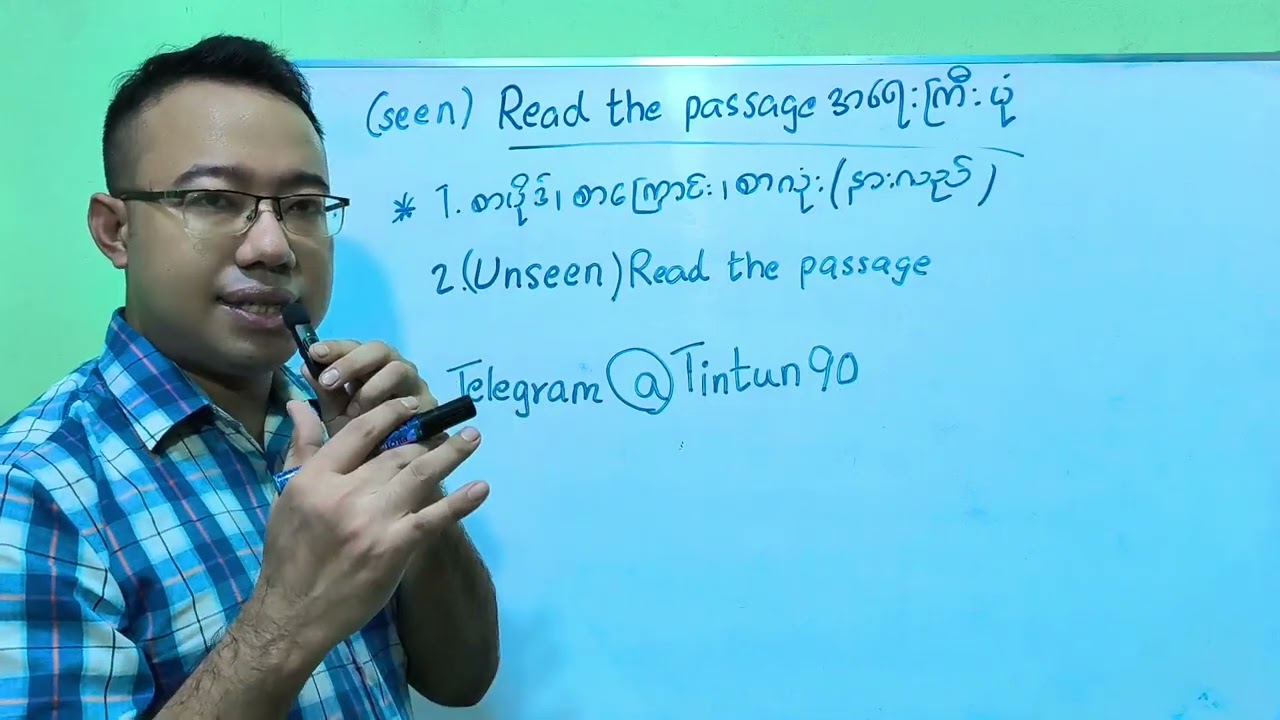 (seen) Read the passage အရေးကြီးပုံ
* 1. စာပိုဒ်၊ စာကြောင်း၊ စာလုံး (နားလည်)
2. (Unseen) Read the passage
Telegram @ Tintun 90